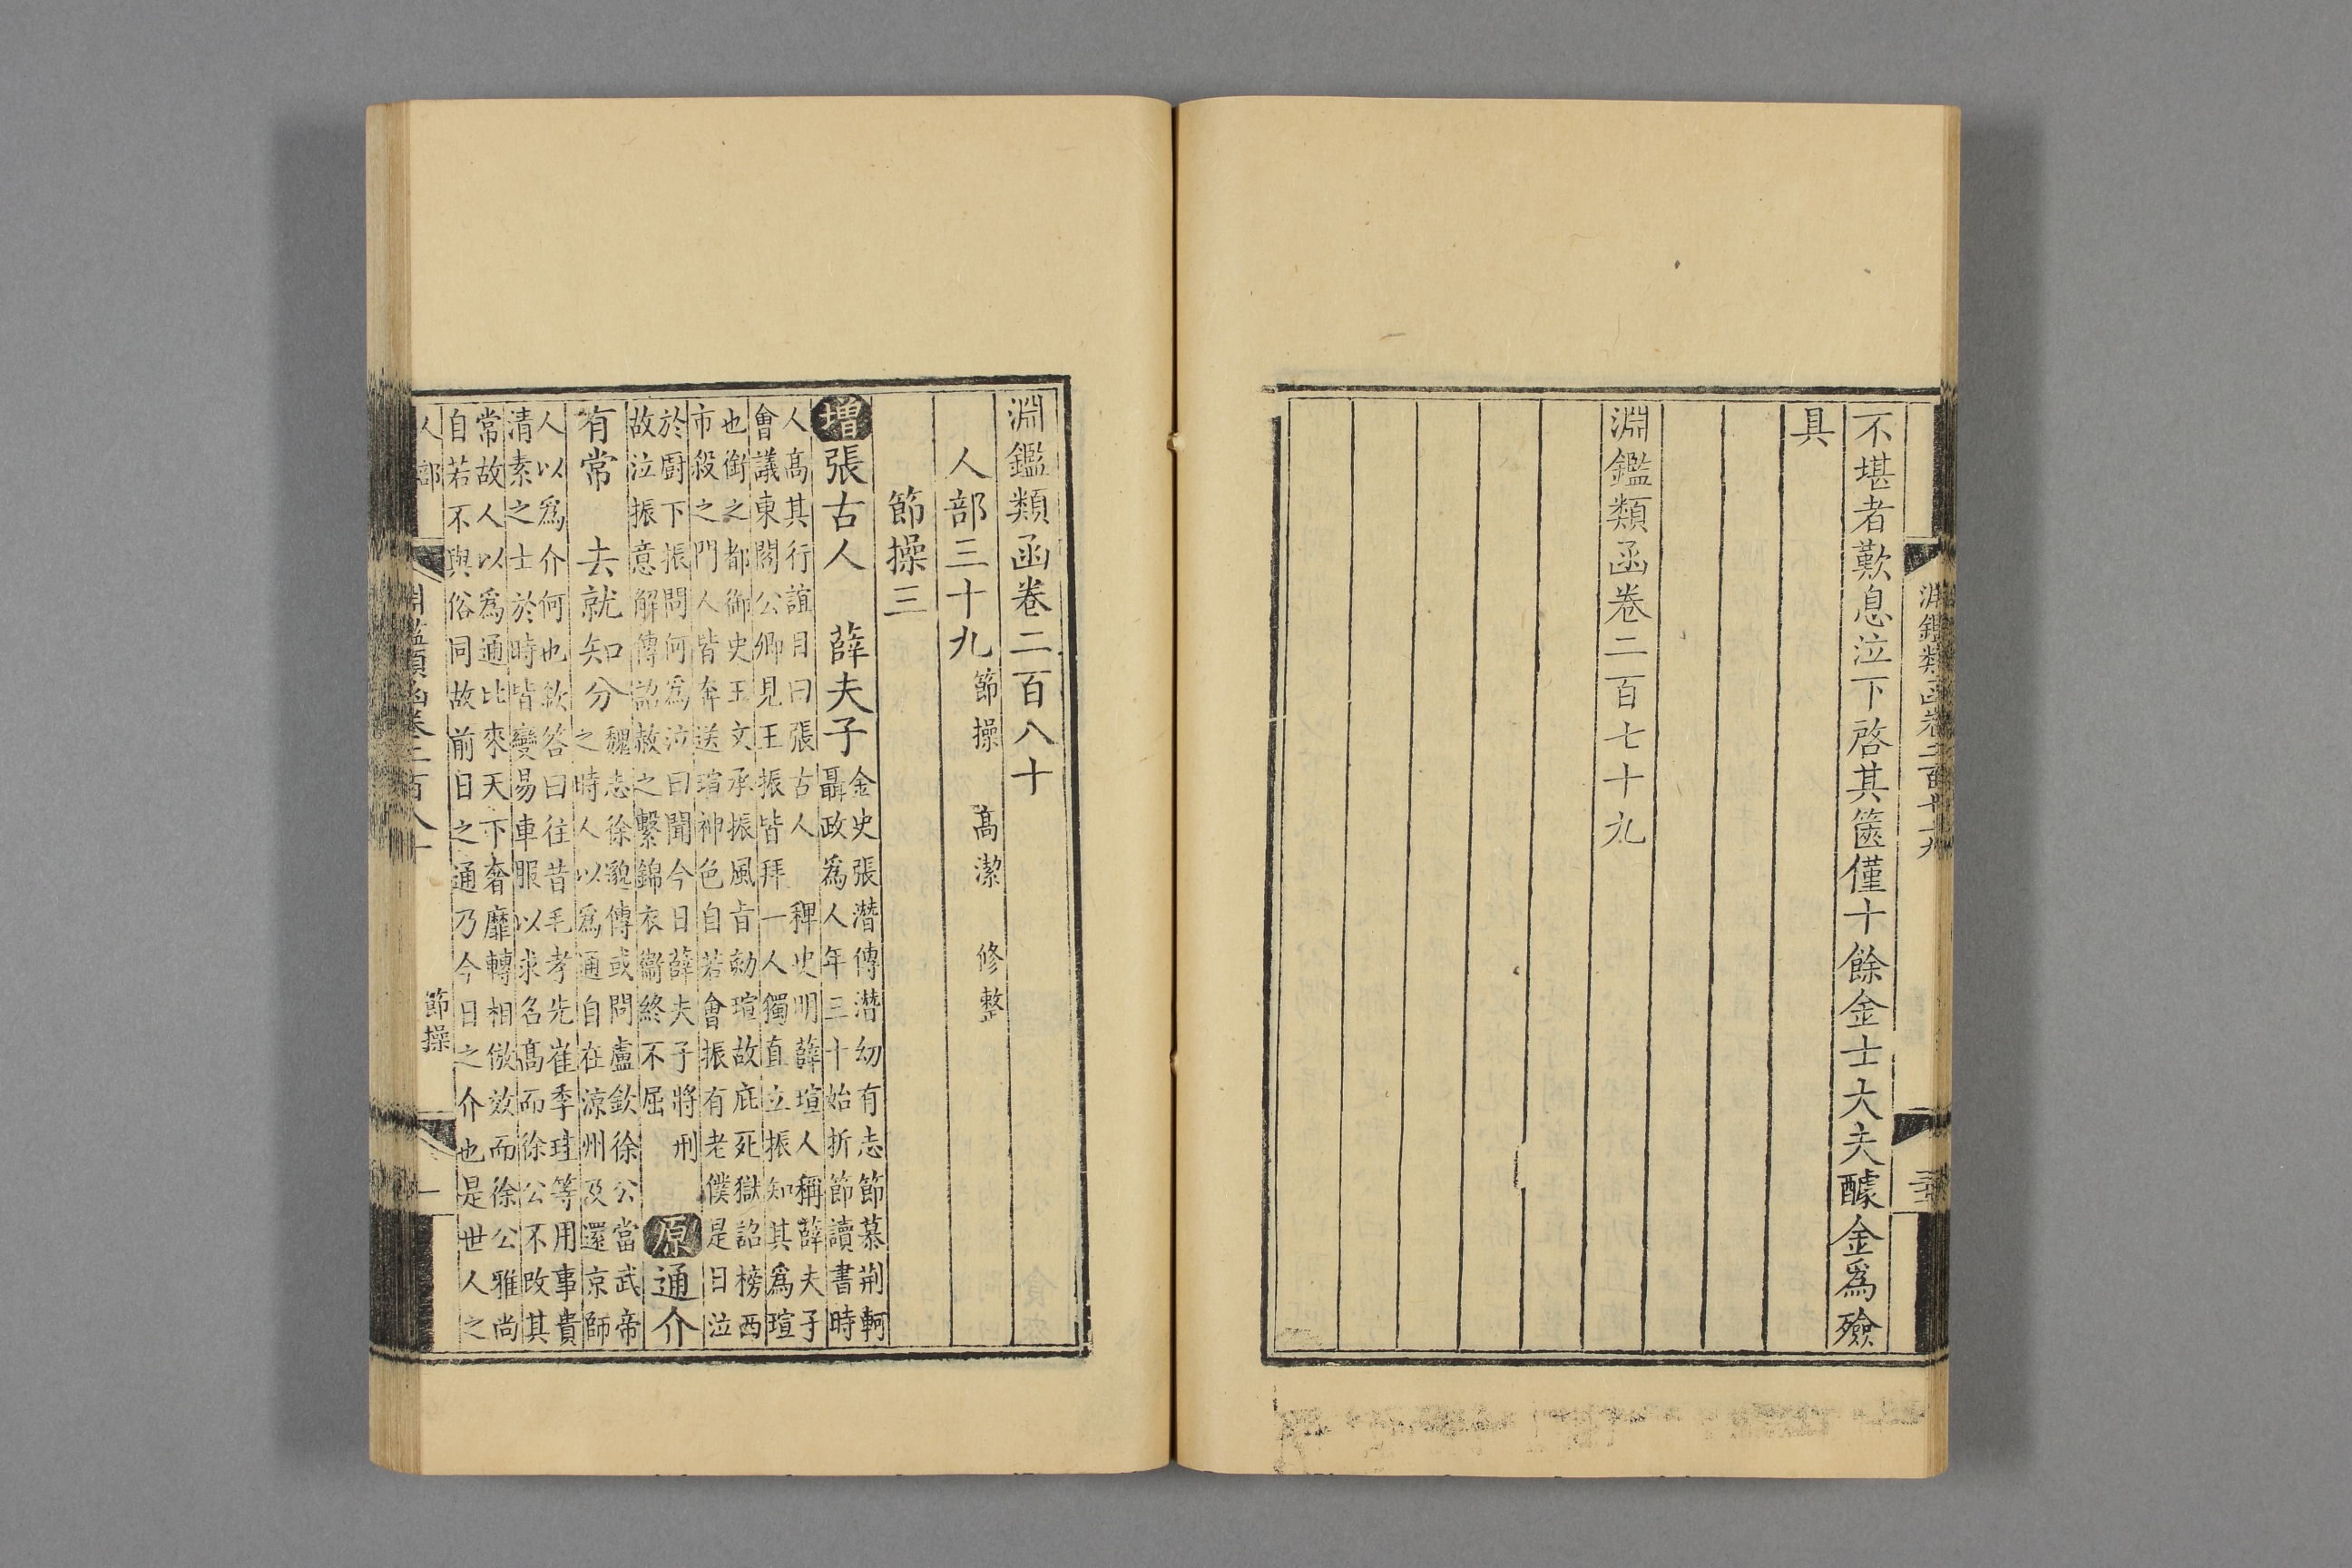 淵鑑類函卷二百七十九
不堪者歎息泣下啓其篋僅十餘金士大夫醵金爲殮
具
淵鑑類函卷二百七十九
淵鑑類函卷二百八十
人部三十九 節操 高潔 修整
節操三
增張古人 薛夫子 金史張潛傳潛幼有志節慕荆軻
聶政爲人年三十始折節讀書時
人高其行誼目曰張古人 稗史明薛瑄人稱薛夫子
會議東閣公卿見王振皆拜一人獨直立振知其爲瑄
也銜之都御史王文承振風旨劾瑄故庇死獄詔榜西
市殺之門人皆奔送瑄神色自若會振有老僕是日泣
於廚下振問何爲泣曰聞今日薛夫子將刑
故泣振意解傳詔赦之繫錦衣衞終不屈
原通介
有常 去就知分 魏志徐邈傳或問盧欽徐公當武帝
之時人以爲通自在涼州及還京師
人以爲介何也欽答曰往昔毛孝先崔季珪等用事貴
清素之士於時皆變易車服以求名高而徐公不改其
常故人以爲通比來天下奢靡轉相倣效而徐公雅尚
自若不與俗同故前日之通乃今日之介也是世人之
人部 淵鑑類函卷二百八十 節操 一